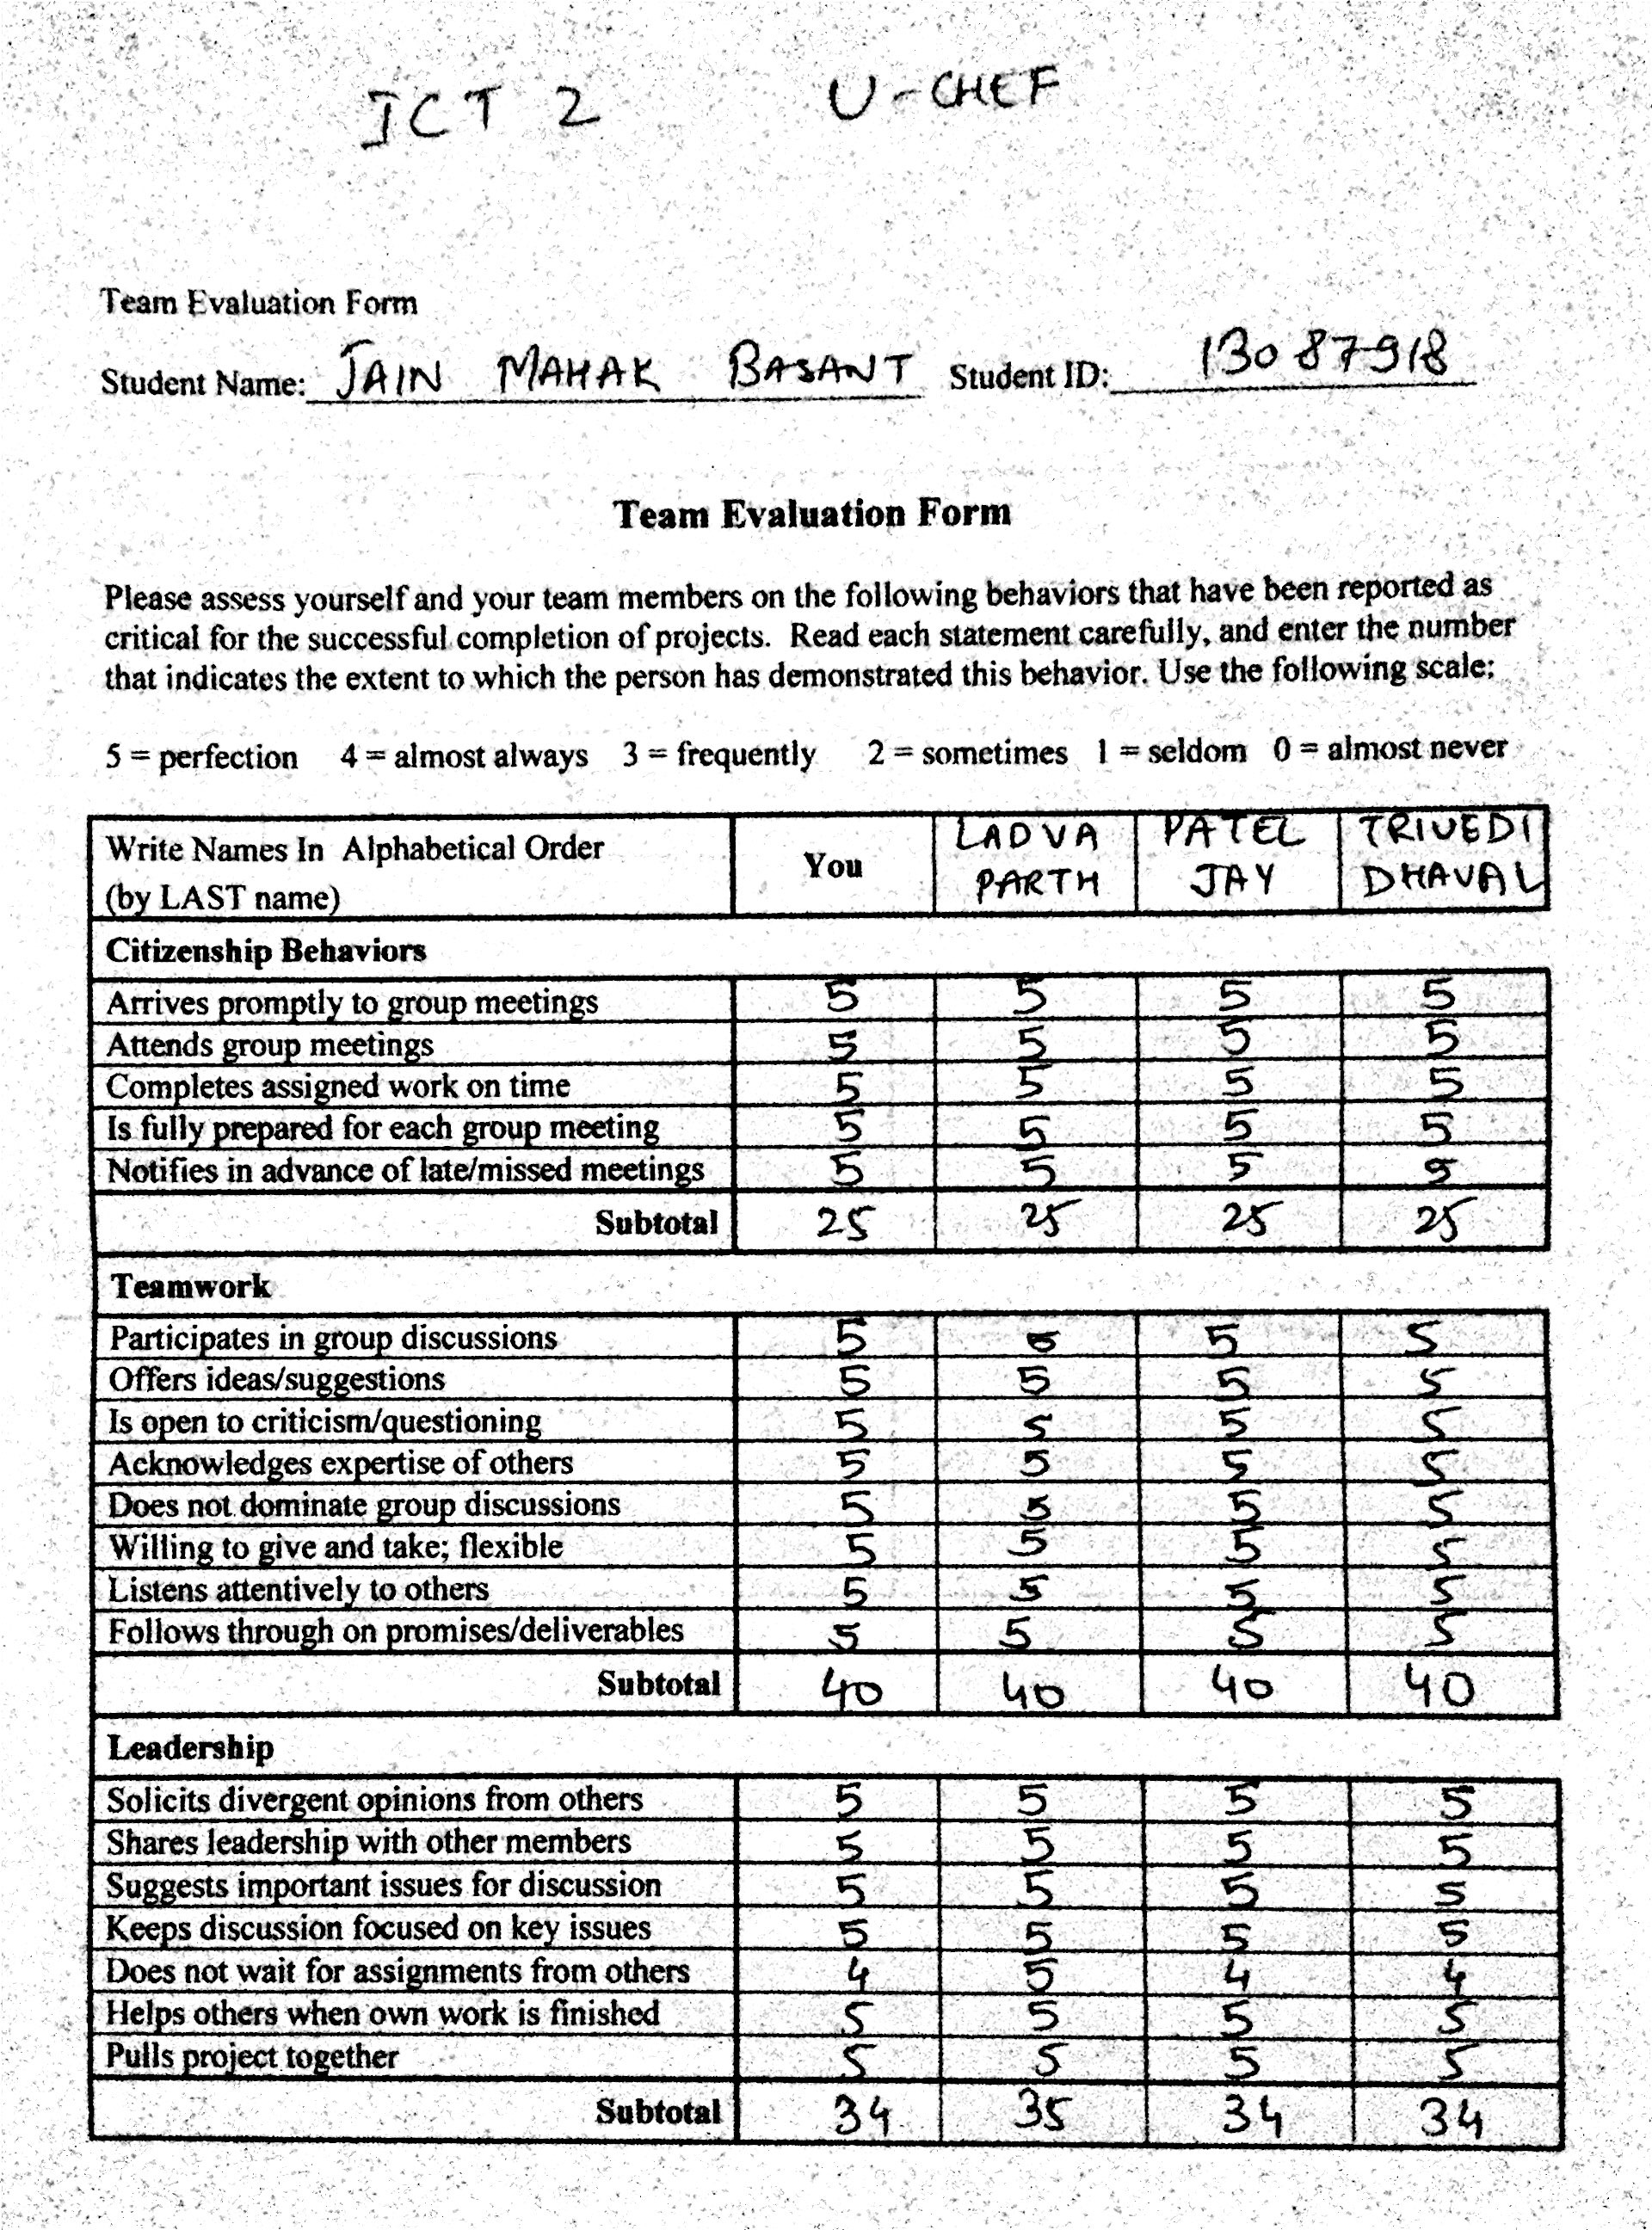 ICT 2 U-CHEF
Team Evaluation Form
Student Name: JAIN MAHAK BASANT Student ID: 13087918
Team Evaluation Form
Please assess yourself and your team members on the following behaviors that have been reported as
critical for the successful completion of projects. Read each statement carefully, and enter the number
that indicates the extent to which the person has demonstrated this behavior. Use the following scale:
5 = perfection 4 = almost always 3 = frequently 2 = sometimes 1 = seldom 0 = almost never
Write Names In Alphabetical Order (by LAST name) You LADVA PARTH PATEL JAY TRIVEDI DHAVAL
Citizenship Behaviors
Arrives promptly to group meetings 5 5 5 5
Attends group meetings 5 5 5 5
Completes assigned work on time 5 5 5 5
Is fully prepared for each group meeting 5 5 5 5
Notifies in advance of late/missed meetings 5 5 5 5
Subtotal 25 25 25 25
Teamwork
Participates in group discussions 5 5 5 5
Offers ideas/suggestions 5 5 5 5
Is open to criticism/questioning 5 5 5 5
Acknowledges expertise of others 5 5 5 5
Does not dominate group discussions 5 5 5 5
Willing to give and take; flexible 5 5 5 5
Listens attentively to others 5 5 5 5
Follows through on promises/deliverables 5 5 5 5
Subtotal 40 40 40 40
Leadership
Solicits divergent opinions from others 5 5 5 5
Shares leadership with other members 5 5 5 5
Suggests important issues for discussion 5 5 5 5
Keeps discussion focused on key issues 5 5 5 5
Does not wait for assignments from others 4 5 4 4
Helps others when own work is finished 5 5 5 5
Pulls project together 5 5 5 5
Subtotal 34 35 34 34